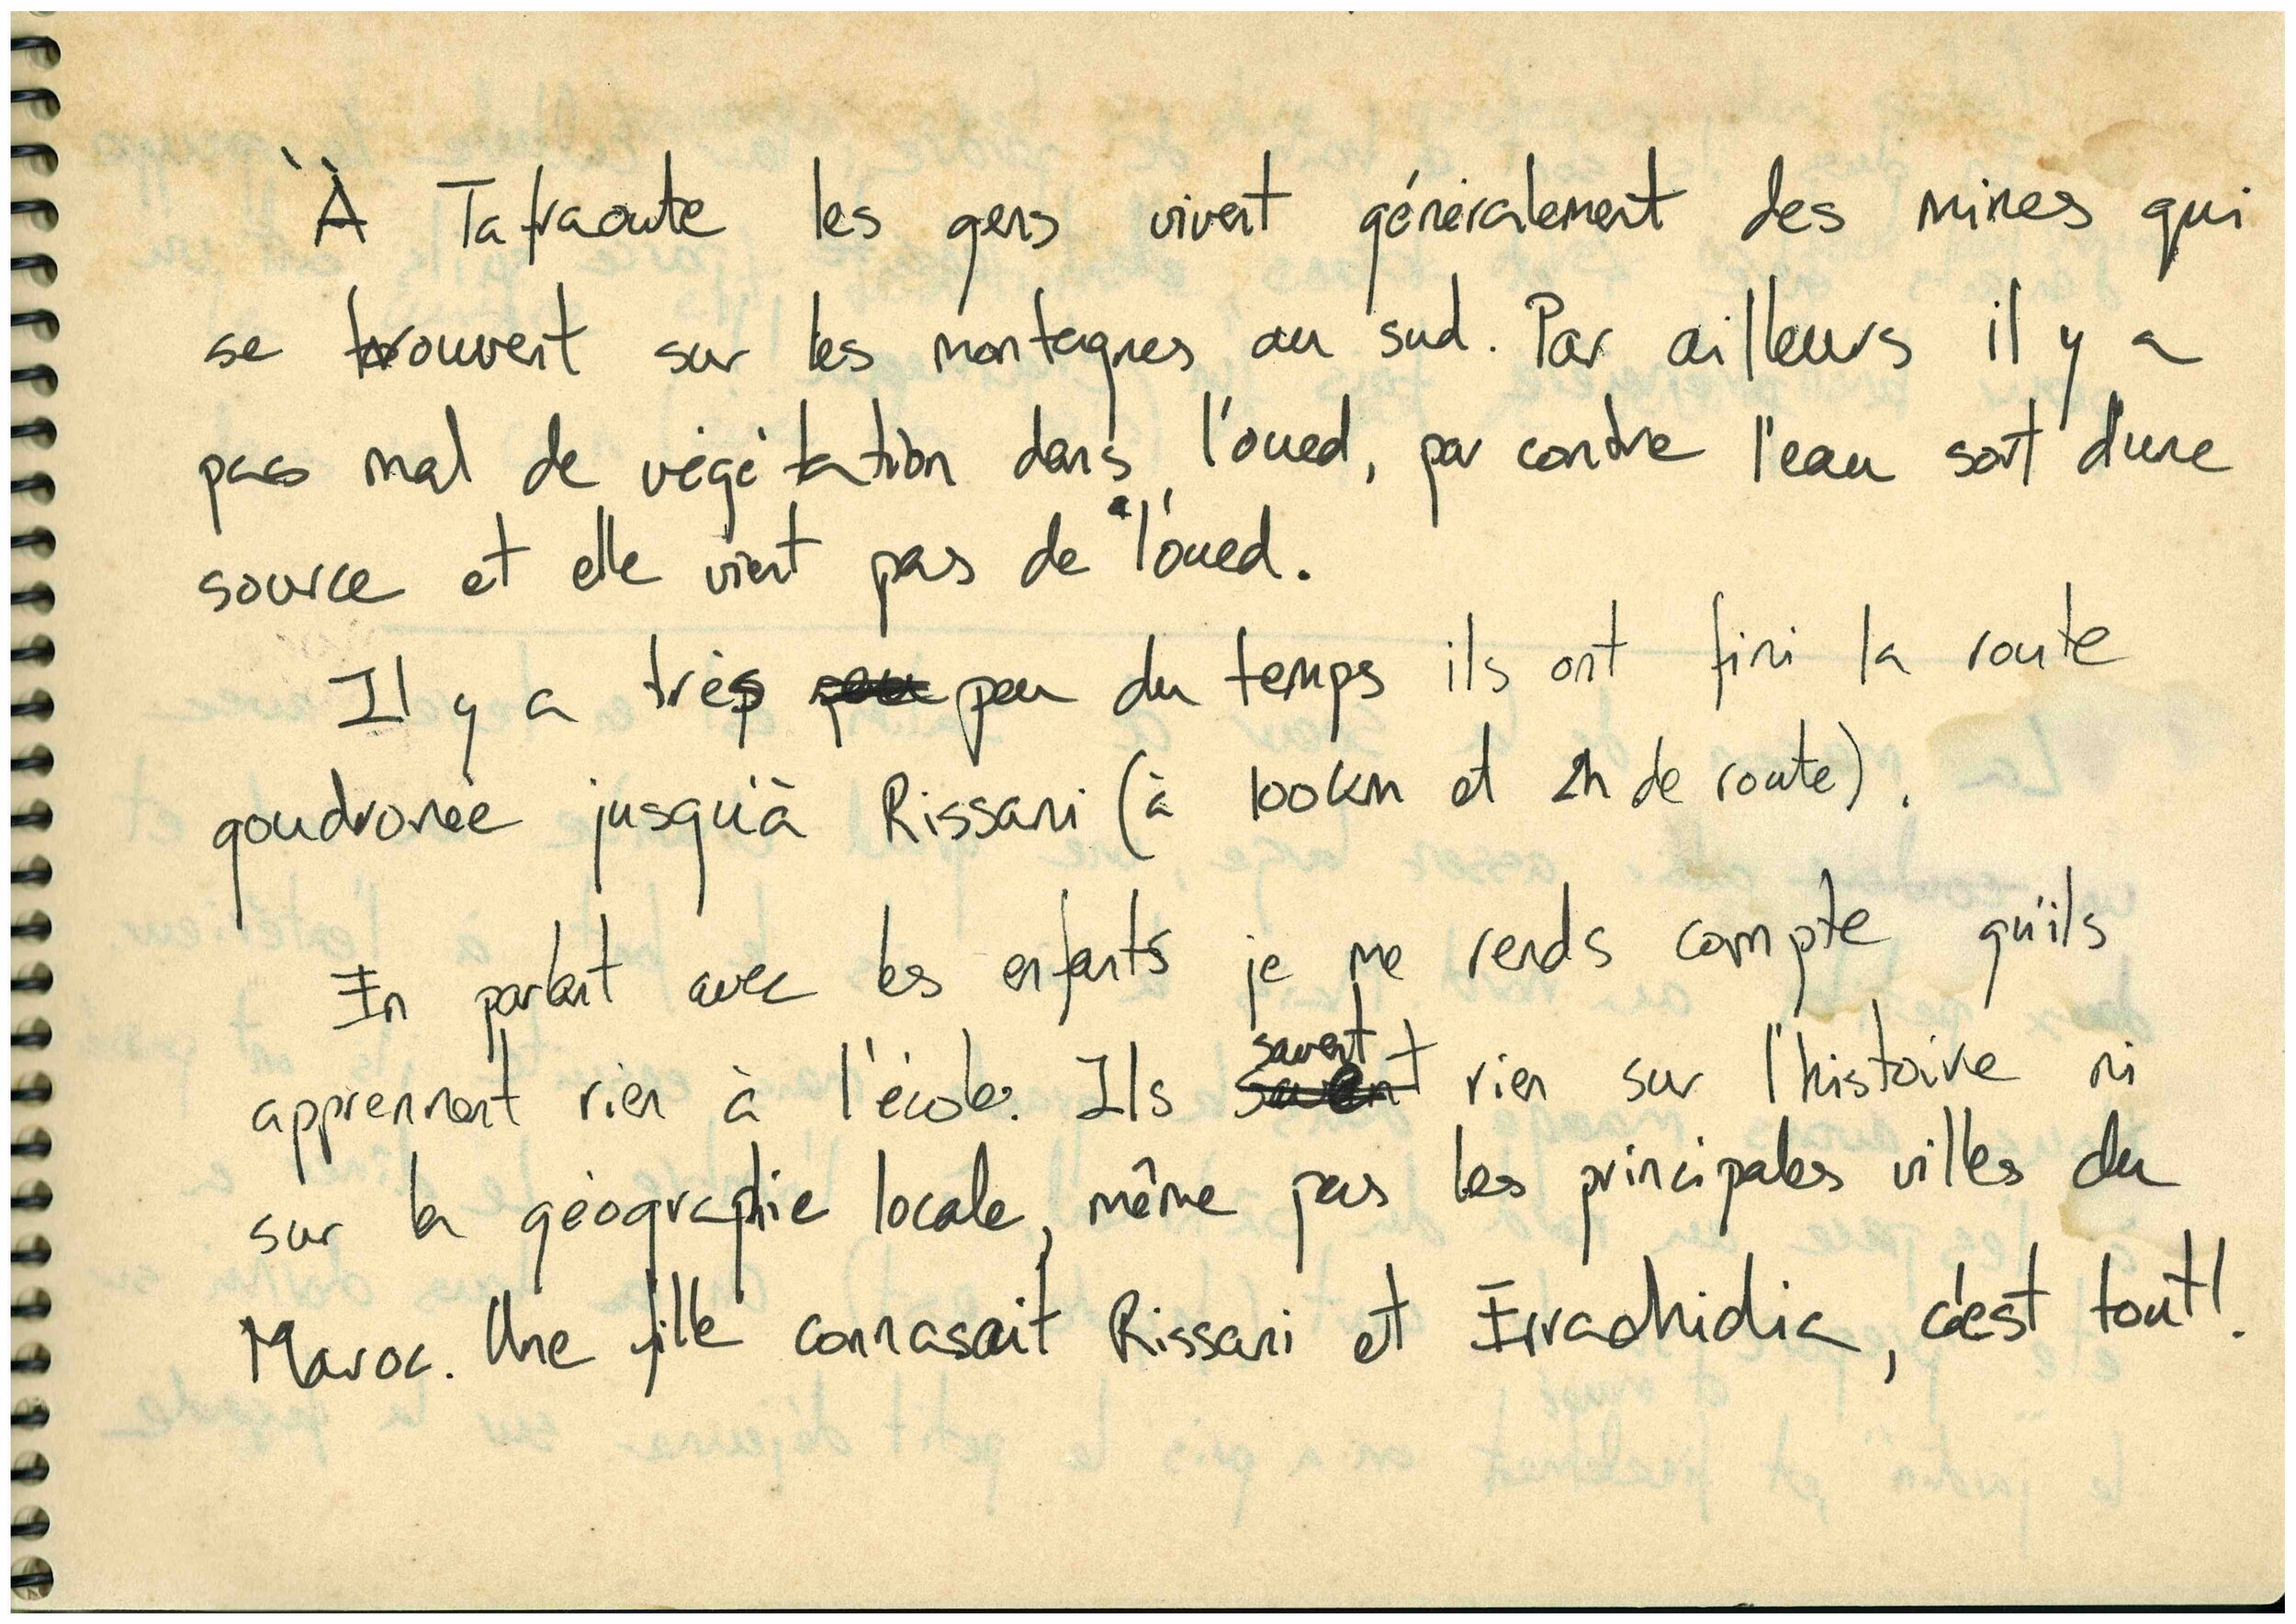 À Tafraoute les gens vivent généralement des mines qui
se trouvent sur les montagnes au sud. Par ailleurs il y a
pas mal de végétation dans l'oued, par contre l'eau sort d'une
source et elle vient pas de l'oued.
Il y a très peu du temps ils ont fini la route
goudronée jusqu'à Rissani (à 100km et 2h de route).
En parlant avec les enfants je me rends compte qu'ils
apprennent rien à l'école. Ils savent rien sur l'histoire ni
sur la géographie locale, même pas les principales villes du
Maroc. Une fille connasait Rissani et Errachidia, c'est tout!.